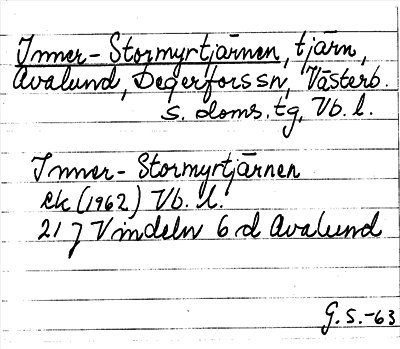 Inner-Stormyrtjärnen, tjärn,
Avalund, Degerfors sn, Västerb.
s. doms. tg, Vb. l.
Inner-Stormyrtjärnen
ek (1962) Vb. l.
21 J Vindeln 6 d Avalund
G. S.-63